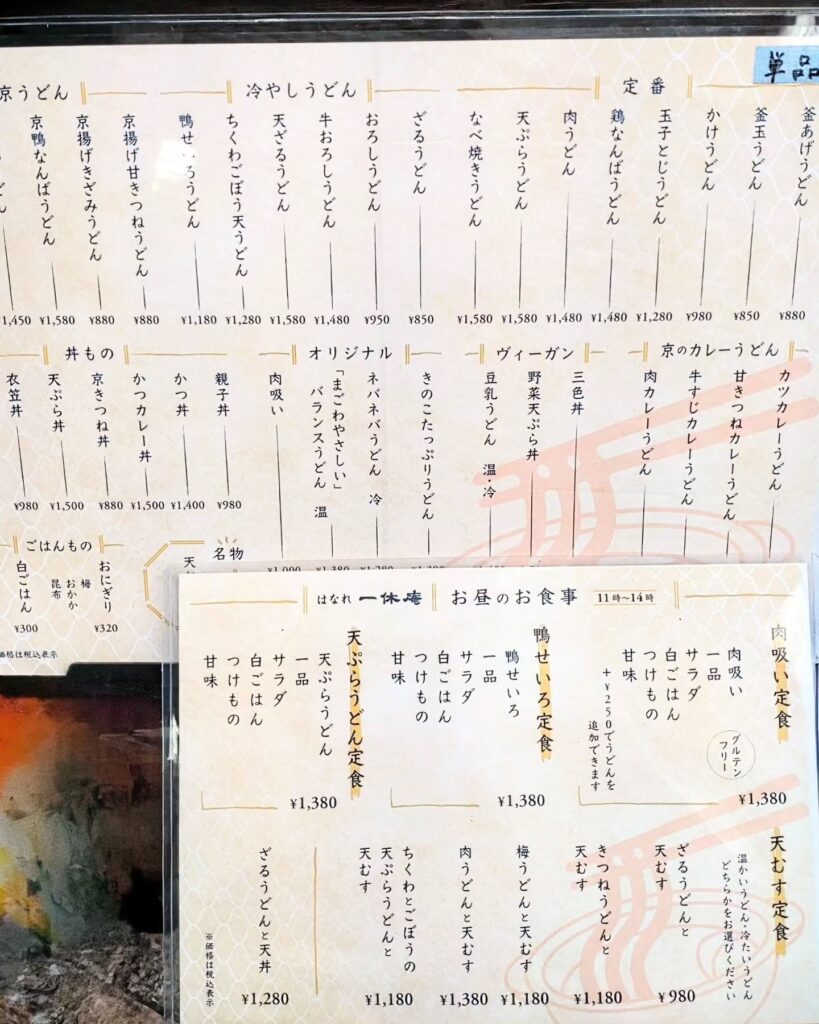 単品
定番
釜あげうどん
¥880
釜玉うどん
¥850
かけうどん
¥980
玉子とじうどん
¥1,280
鶏なんばうどん
¥1,480
肉うどん
¥1,480
天ぷらうどん
¥1,580
なべ焼きうどん
¥1,580
冷やしうどん
ざるうどん
¥850
おろしうどん
¥950
牛おろしうどん
¥1,480
天ざるうどん
¥1,580
ちくわごぼう天うどん
¥1,280
鴨せいろうどん
¥1,180
京うどん
京揚げ甘きつねうどん
¥880
京揚げきざみうどん
¥880
京鴨なんばうどん
¥1,580
¥1,450
京のカレーうどん
カツカレーうどん
甘きつねカレーうどん
牛すじカレーうどん
肉カレーうどん
ヴィーガン
三色丼
野菜天ぷら丼
豆乳うどん 温・冷
オリジナル
きのこたっぷりうどん
ネバネバうどん 冷
「まごわやさしい」
バランスうどん 温
肉吸い
丼もの
親子丼
¥980
かつ丼
¥1,400
かつカレー丼
¥1,500
京きつね丼
¥880
天ぷら丼
¥1,500
衣笠丼
¥980
名物
天
ごはんもの
おにぎり
梅
おかか
昆布
¥320
白ごはん
¥300
価格は税込表示
はなれ 一休庵 お昼のお食事 11時〜14時
肉吸い定食
肉吸い
一品
サラダ
白ごはん
つけもの
甘味
グルテン
フリー
+¥250でうどんを
追加できます
¥1,380
鴨せいろ定食
鴨せいろ
一品
サラダ
白ごはん
つけもの
甘味
¥1,380
天ぷらうどん定食
天ぷらうどん
一品
サラダ
白ごはん
つけもの
甘味
¥1,380
天むす定食
温かいうどん・冷たいうどん
どちらかをお選びください
ざるうどんと
天むす
¥980
きつねうどんと
天むす
¥1,180
梅うどんと天むす
¥1,180
肉うどんと天むす
¥1,380
ちくわとごぼうの
天ぷらうどんと
天むす
¥1,180
ざるうどんと天丼
¥1,280
※価格は税込表示